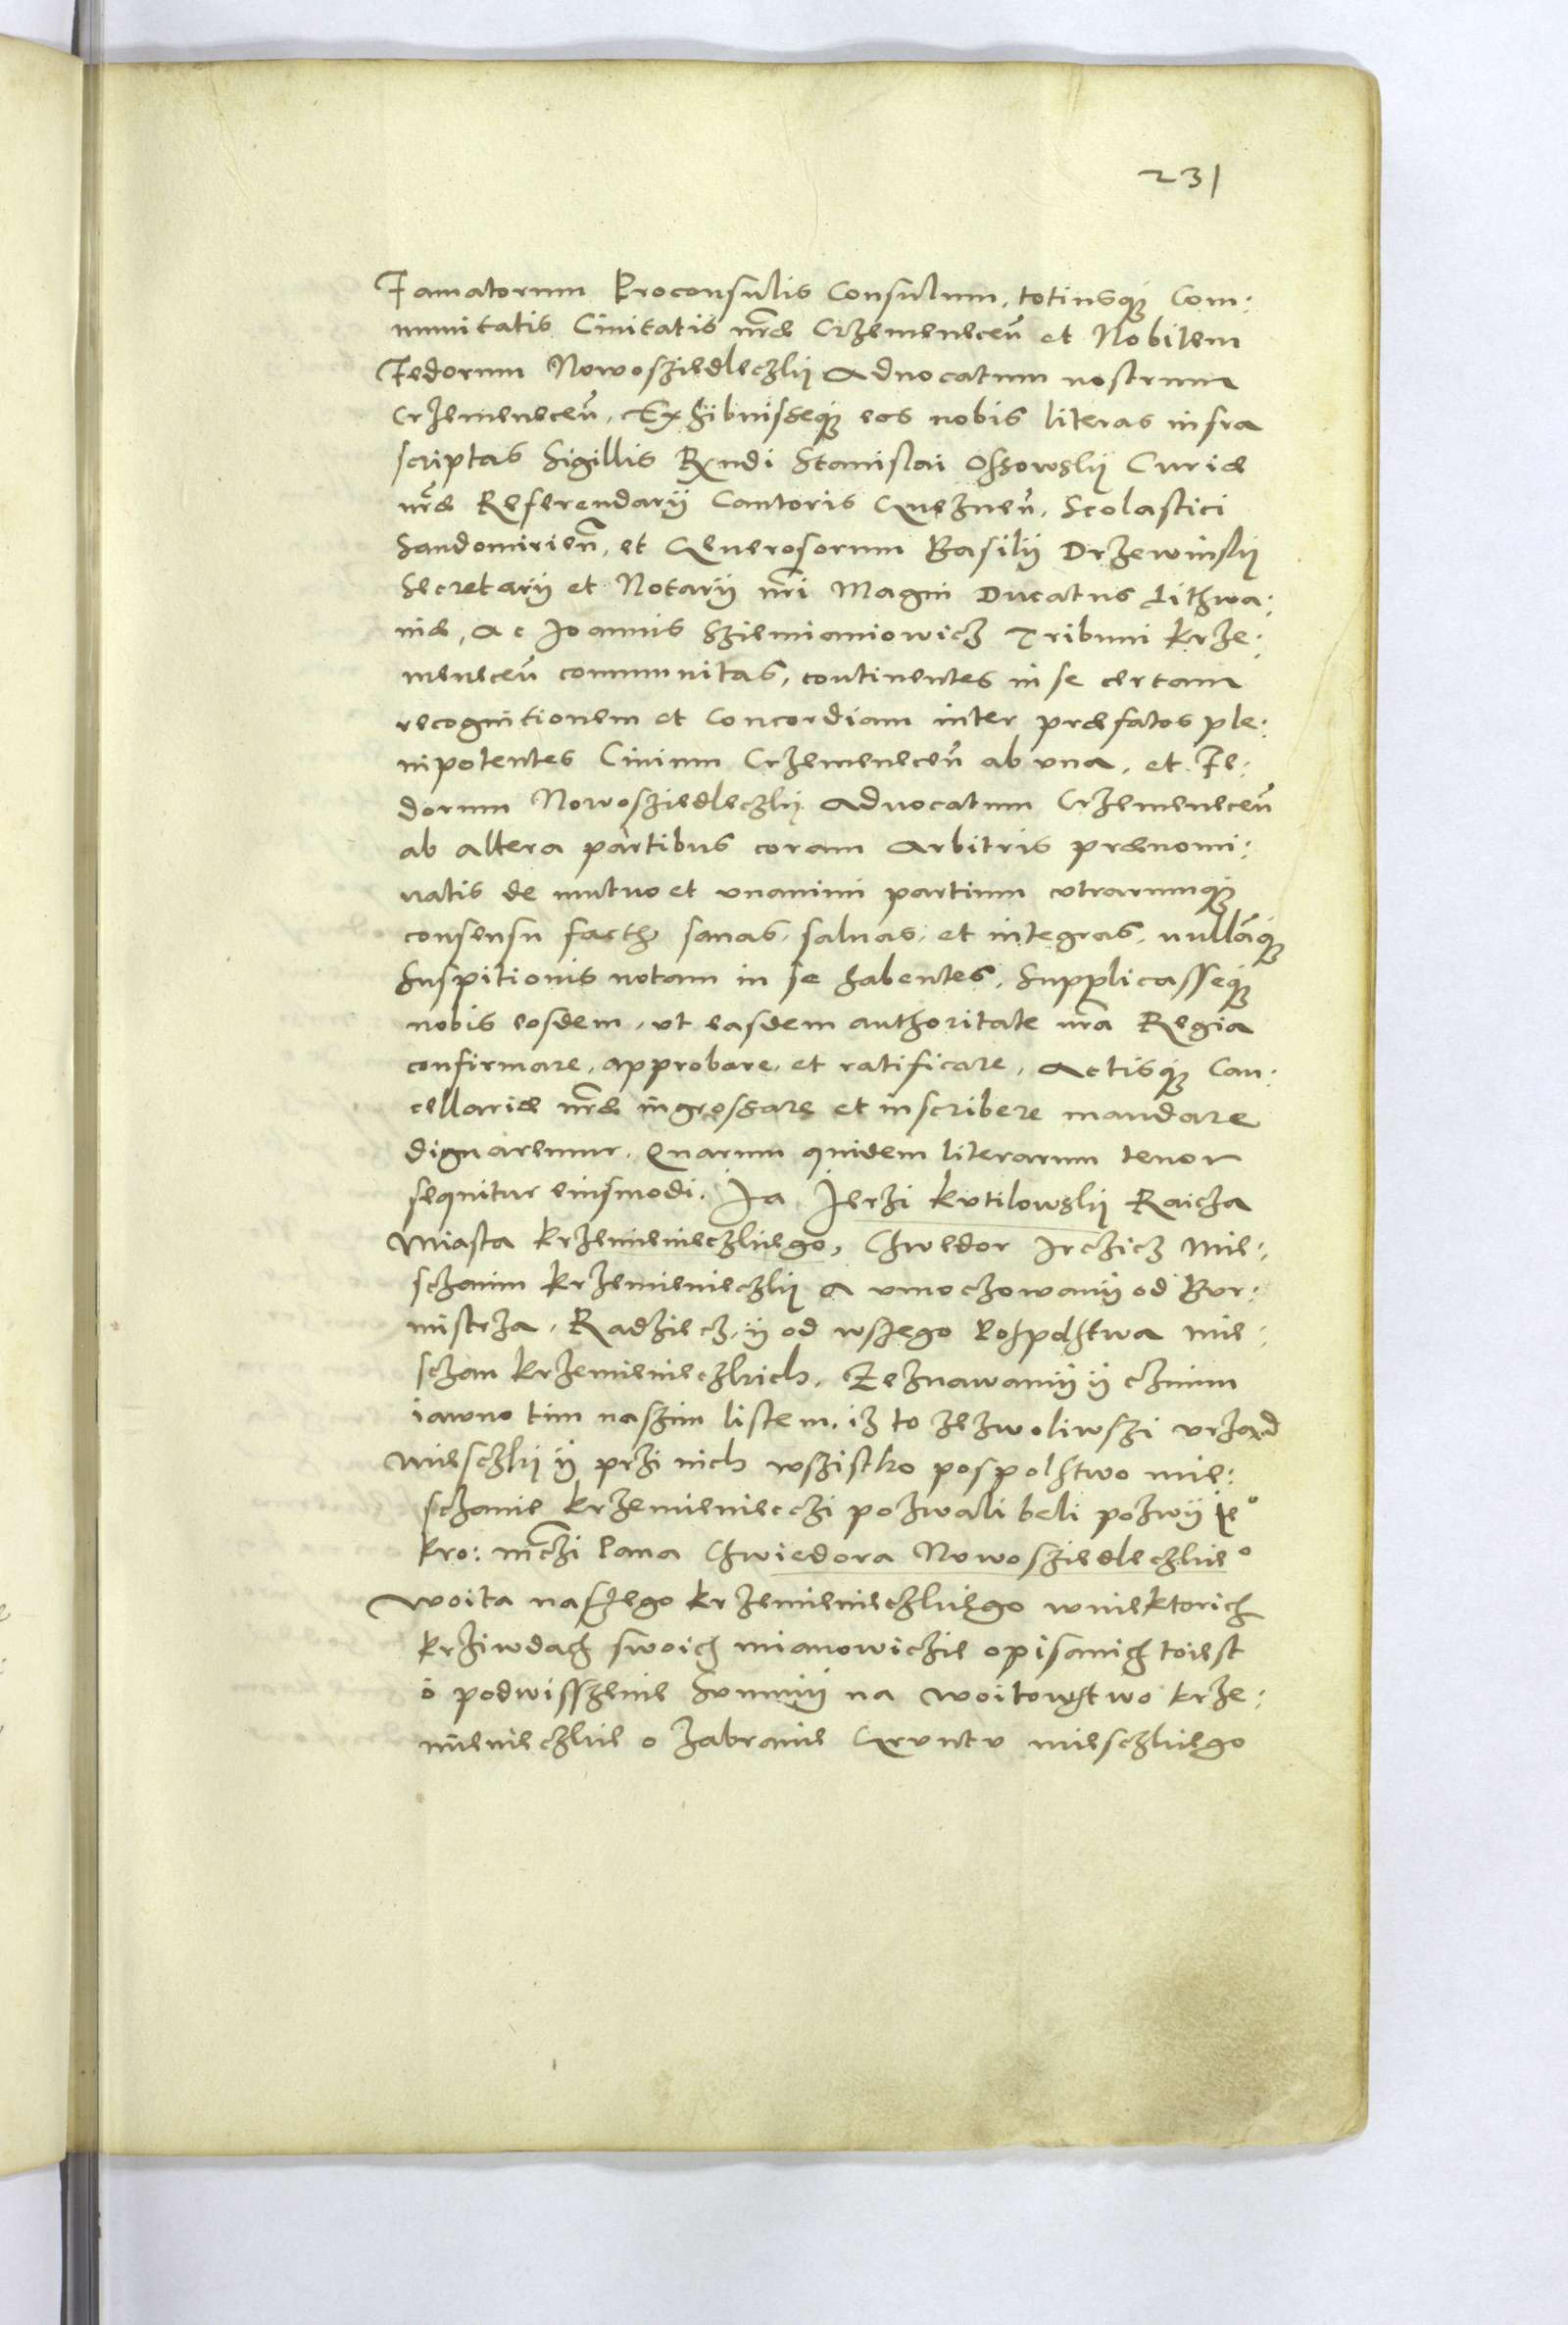 231
Famatorum Proconsulis Consulum, totiusq; Com:
munitatis Ciuitatis nr̃æ Crzemeneceñ et Nobilem
Fedorum Nowosziedleczkij Aduocatum nostrum
Crzemeneceñ, Exhibuisseq; eos nobis literas infra
scriptas Sigillis Rndi Stanislai Ossowskij Curiæ
nr̃æ Referendarij Cantoris Gnezneñ, Scolastici
Sandomirieñ, et Generosorum Basilij Drzewinskij
Secretarij et Notarij nr̃i Magni Ducatus Lithwa:
niæ, Ac Joannis Sziemianiowicz Tribuni Krze:
meneceñ communitas, continentes in se certam
recognitionem et Concordiam inter præfatos ple:
nipotentes Ciuium Crzemeneceñ ab vna, et Fe:
dorum Nowosziedleczkij Aduocatum Crzemeneceñ
ab altera partibus coram Arbitris prænomi:
natis de mutuo et vnanimi partium vtrarumq;
consensu sanas, saluas, et integras, nullãq;
Suspitionis notam in se habentes, Supplicasseq;
nobis eosdem, vt easdem authoritate nr̃a Regia
confirmare, approbare, et ratificare, Actisq; Can:
cellariæ nr̃æ ingrossare et inscribere mandare
dignaremur. Quarum quidem literarum tenor
sequitur eiusmodi. Ja Jerzi Kutilowskij Raicza
Miasta Krzemienieczkiego, Chwedor Irczicz Mie:
sczanin Krzemienieczkij a vmoczowanij od Bur:
mistrza, Radziecz, ij od wszego Pospolstwa mie:
sczan Krzemienieczkich, Zeznawamij ij czinim
iawno tim naszim listem, iz to zezwoliwszi vrzad
Miesczkij ij przi nich wszistko pospolstwo mie:
sczanie Krzemienieczi pozwali beli pozwij ie°
Kro: mczi Pana Chwiedora Nowosziedleczkie°
Woita naszego Krzemienieczkiego wniektorich
krziwdach swoich mianowiczie opisanich toiest
o podwisszenie Summij na Woitowstwo Krze:
mienieczkie o zabranie Gruntu miesczkiego